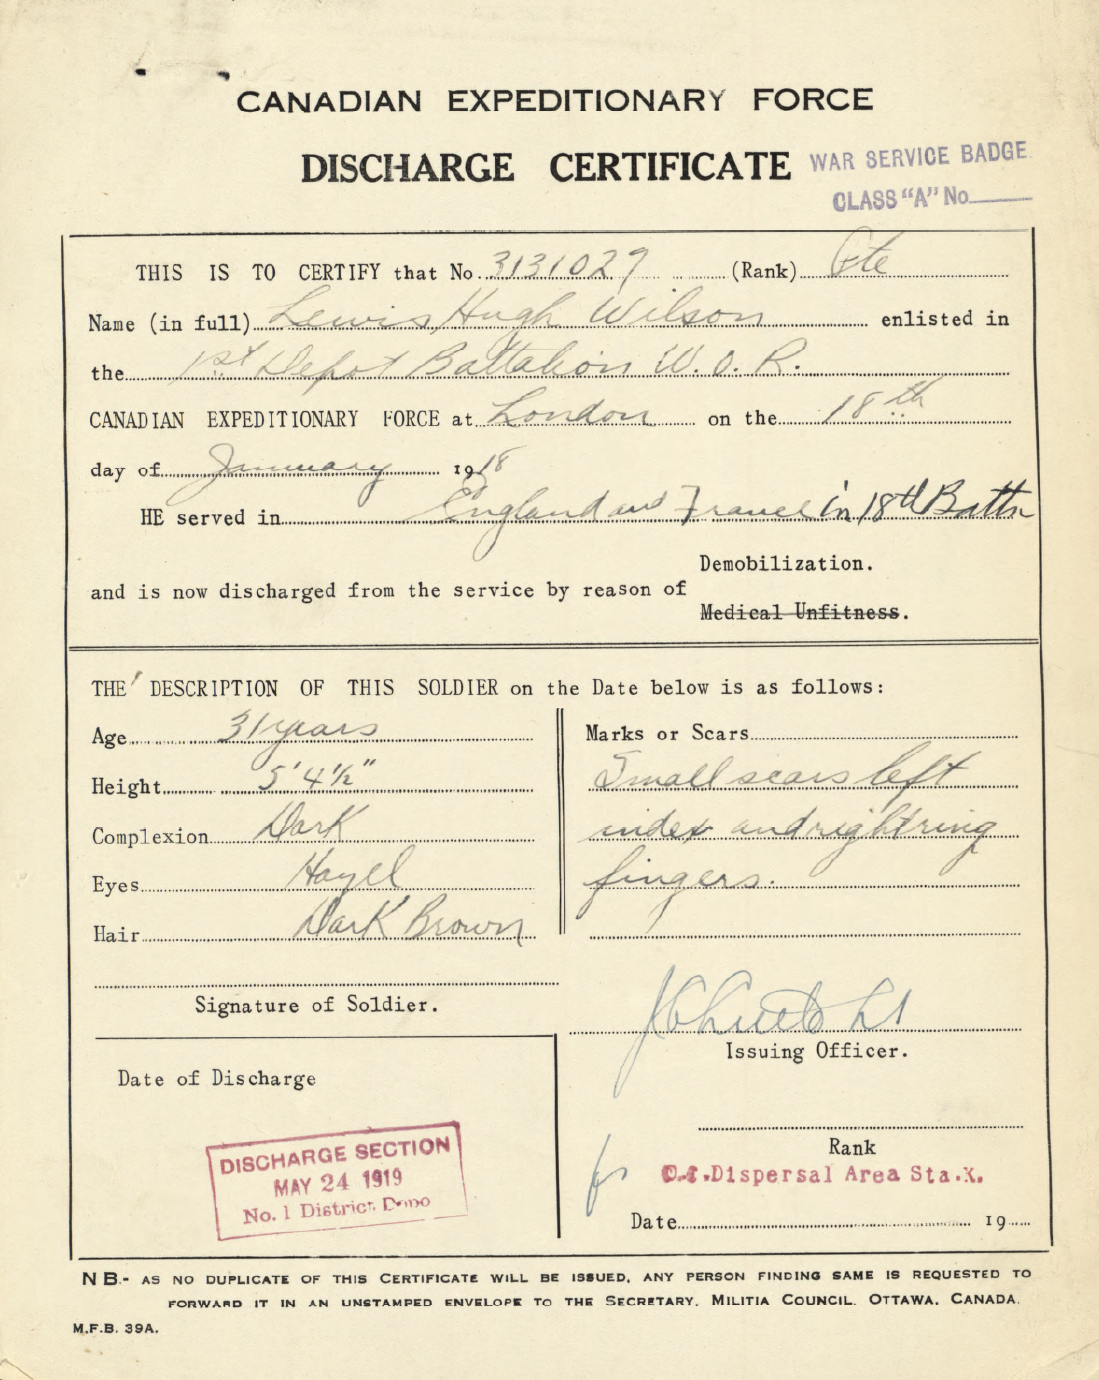 CANADIAN EXPEDITIONARY FORCE
DISCHARGE CERTIFICATE
WAR SERVICE BADGE
CLASS "A" No
THIS IS TO CERTIFY that No. 3131029 (Rank) Pte
Name (in full) Lewis Hugh Wilson enlisted in
the 1st Depot Battalion W.O.R.
CANADIAN EXPEDITIONARY FORCE at London on the 18th
day of January 1918
HE served in England and France in 18th Battn
and is now discharged from the service by reason of
Demobilization.
Medical Unfitness.
THE DESCRIPTION OF THIS SOLDIER on the Date below is as follows:
Age 31 years
Height 5' 4½"
Complexion Dark
Eyes Hazel
Hair Dark Brown
Marks or Scars
Small scars left
index and right ring
fingers.
Signature of Soldier.
Lt
Issuing Officer.
Date of Discharge
DISCHARGE SECTION
MAY 24 1919
No. 1 District Depo
Rank
for O.C. Dispersal Area Sta.K.
Date 19
NB.- AS NO DUPLICATE OF THIS CERTIFICATE WILL BE ISSUED, ANY PERSON FINDING SAME IS REQUESTED TO
FORWARD IT IN AN UNSTAMPED ENVELOPE TO THE SECRETARY, MILITIA COUNCIL. OTTAWA. CANADA.
M.F.B. 39A.